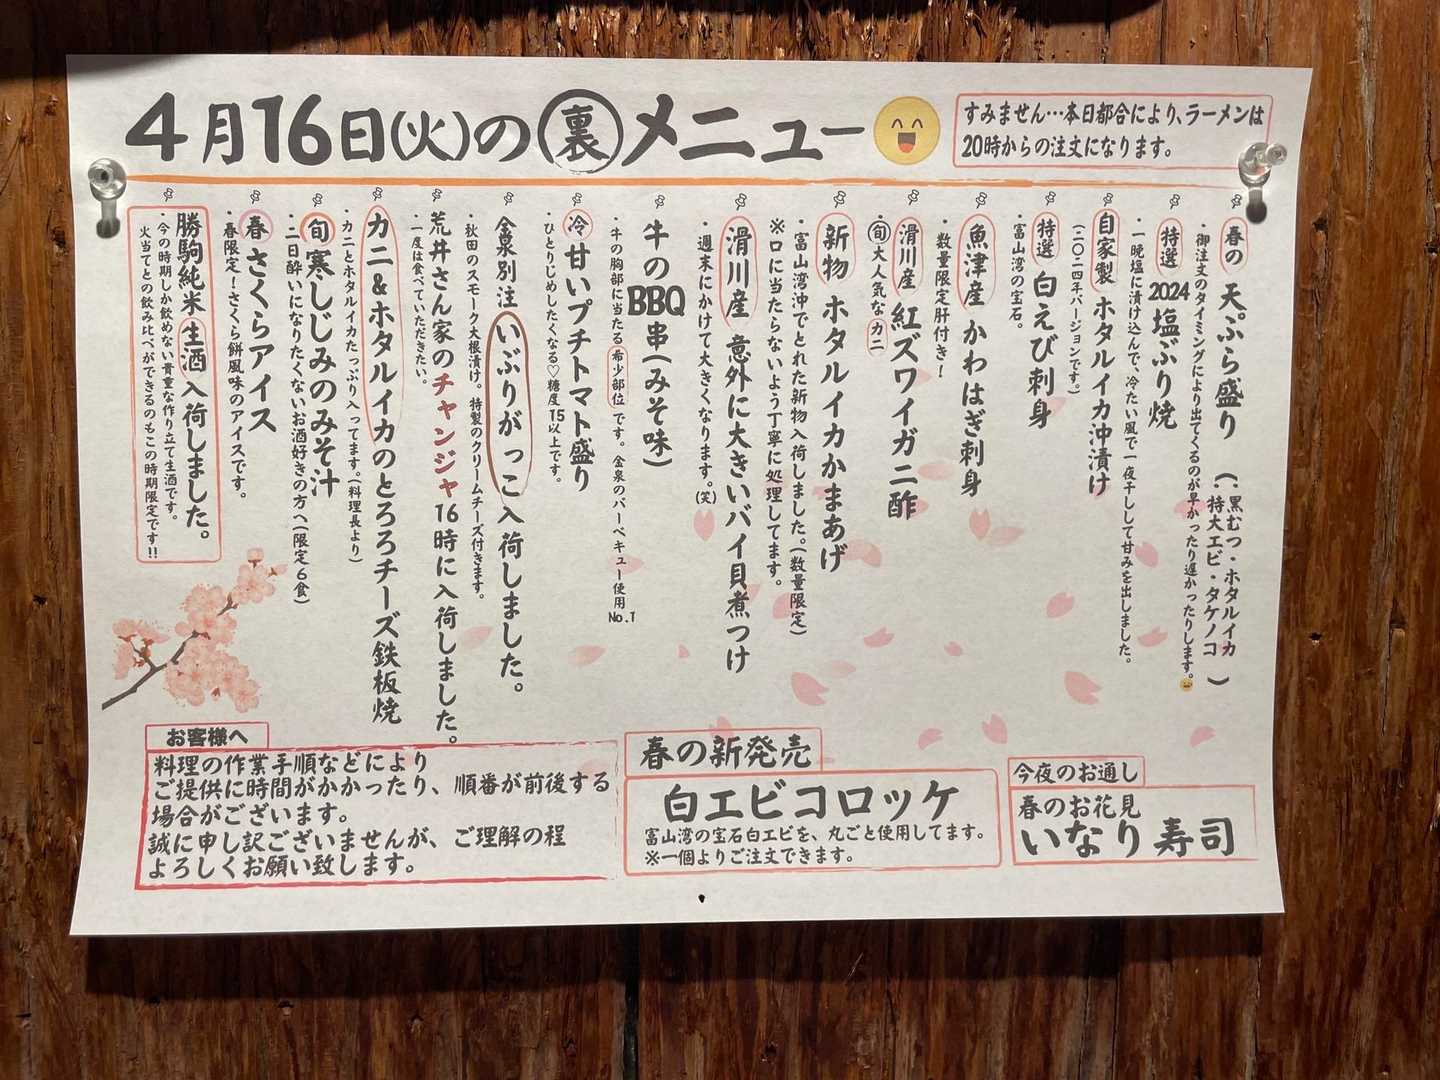 4月16日(火)の裏メニュー
すみません…本日都合により、ラーメンは
20時からの注文になります。
春の 天ぷら盛り (・黒むつ・ホタルイカ
・特大エビ・タケノコ)
・御注文のタイミングにより出てくるのが早かったり遅かったりします。
特選 2024塩ぶり焼
・一晩塩に漬け込んで、冷たい風で一夜干しして甘みを出しました。
自家製 ホタルイカ沖漬け
(二〇二四年バージョンです。)
特選 白えび刺身
・富山湾の宝石。
魚津産 かわはぎ刺身
・数量限定肝付き!
滑川産 紅ズワイガニ酢
・旬大人気なカニ
新物 ホタルイカかまあげ
・富山湾沖でとれた新物入荷しました。(数量限定)
※口に当たらないよう丁寧に処理してます。
滑川産 意外に大きいバイ貝煮つけ
・週末にかけて大きくなります。(笑)
牛のBBQ串(みそ味)
・牛の胸部に当たる希少部位です。金泉のバーベキュー使用No.1
冷 甘いプチトマト盛り
・ひとりじめしたくなる♡糖度15以上です。
金泉別注 いぶりがっこ入荷しました。
・秋田のスモーク大根漬け。特製のクリームチーズ付きます。
荒井さん家のチャンジャ16時に入荷しました。
・一度は食べていただきたい。
カニ&ホタルイカのとろろチーズ鉄板焼
・カニとホタルイカたっぷり入ってます。(料理長より)
旬 寒しじみのみそ汁
・二日酔いになりたくないお酒好きの方へ(限定6食)
春 さくらアイス
・春限定!さくら餅風味のアイスです。
勝駒純米生酒入荷しました。
・今の時期しか飲めない貴重な作り立て生酒です。
火当てとの飲み比べができるのもこの時期限定です!!
お客様へ
料理の作業手順などにより
ご提供に時間がかかったり、順番が前後する
場合がございます。
誠に申し訳ございませんが、ご理解の程
よろしくお願い致します。
春の新発売
白エビコロッケ
富山湾の宝石白エビを、丸ごと使用してます。
※一個よりご注文できます。
今夜のお通し
春のお花見
いなり寿司